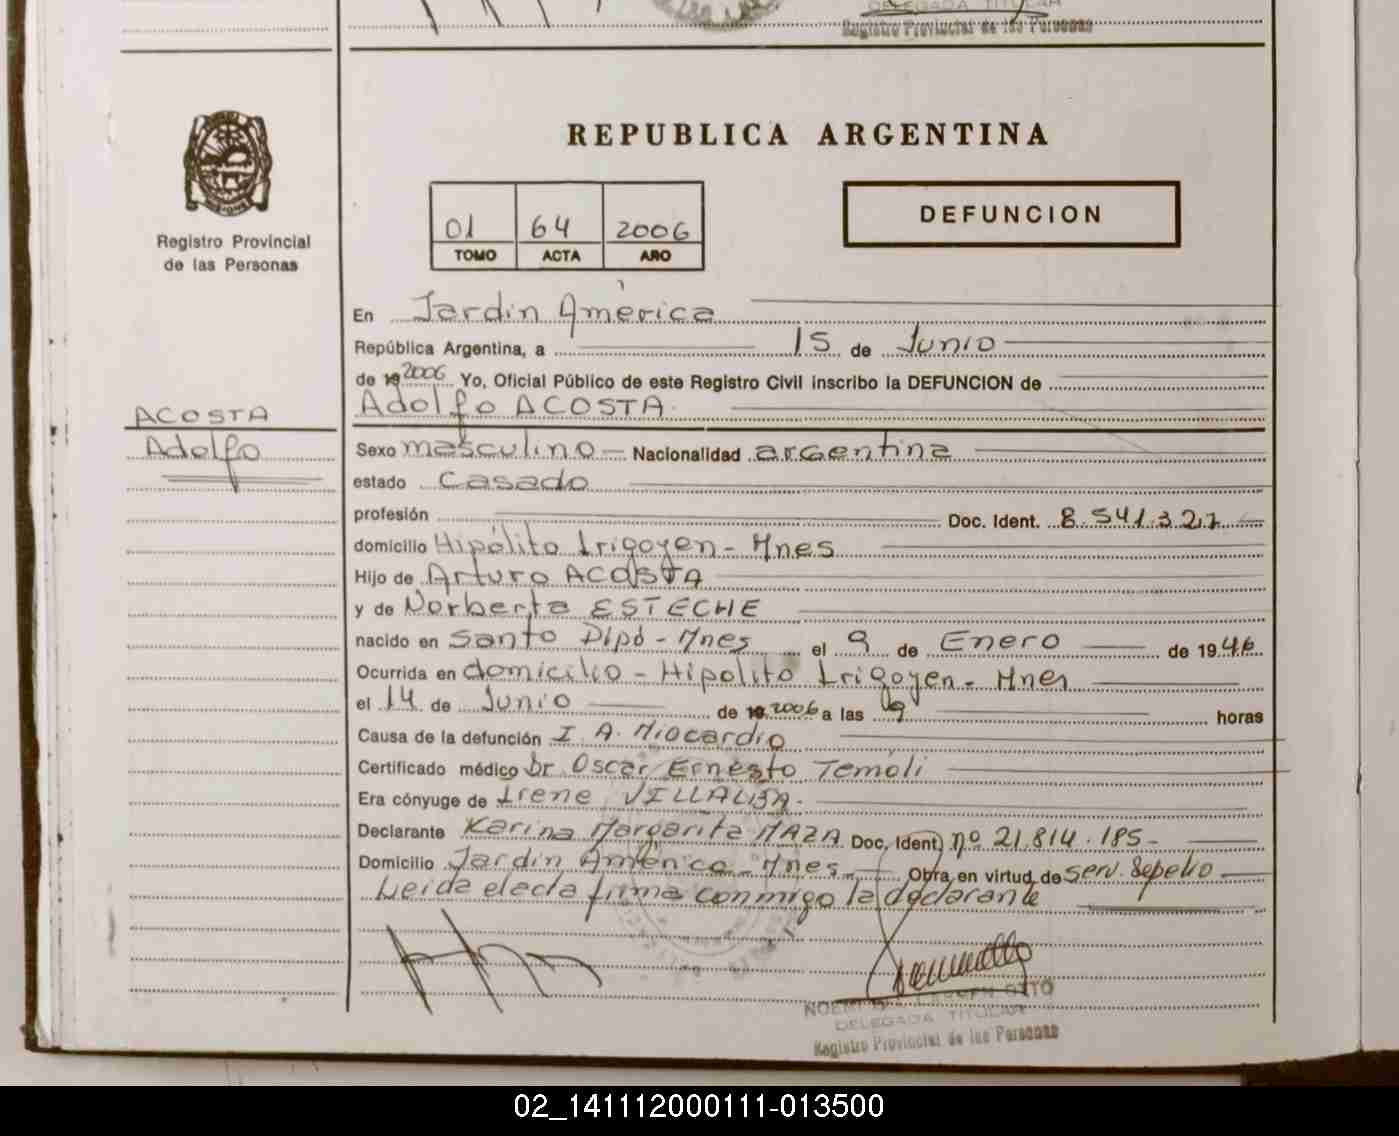 DELEGADA TITULAR
Registro Provincial de las Personas
REPUBLICA ARGENTINA
01 64 2006
TOMO ACTA AÑO
DEFUNCION
Registro Provincial
de las Personas
En Jardin América
República Argentina, a 15 de Junio
de 19 2006 Yo, Oficial Público de este Registro Civil inscribo la DEFUNCION de
Adolfo ACOSTA
ACOSTA
Adolfo
Sexo masculino Nacionalidad argentina
estado Casado
profesión Doc. Ident. 8.541.327
domicilio Hipólito Irigoyen - Mnes
Hijo de Arturo ACOSTA
y de Norberta ESTECHE
nacido en Santo Pipó - Mnes el 9 de Enero de 1946
Ocurrida en domicilio - Hipolito Irigoyen - Mnes
el 14 de Junio de 19 2006 a las 9 horas
Causa de la defunción I. A. Miocardio
Certificado médico Dr. Oscar Ernesto Temoli
Era cónyuge de Irene VILLALBA.
Declarante Karina Margarita MAZA Doc. Ident. nº 21.814.185-
Domicilio Jardin América - Mnes. Obra en virtud de serv. Sepelio
Leida el acta firma conmigo la declarante
DELEGADA TITULAR
Registro Provincial de las Personas
02_141112000111-013500